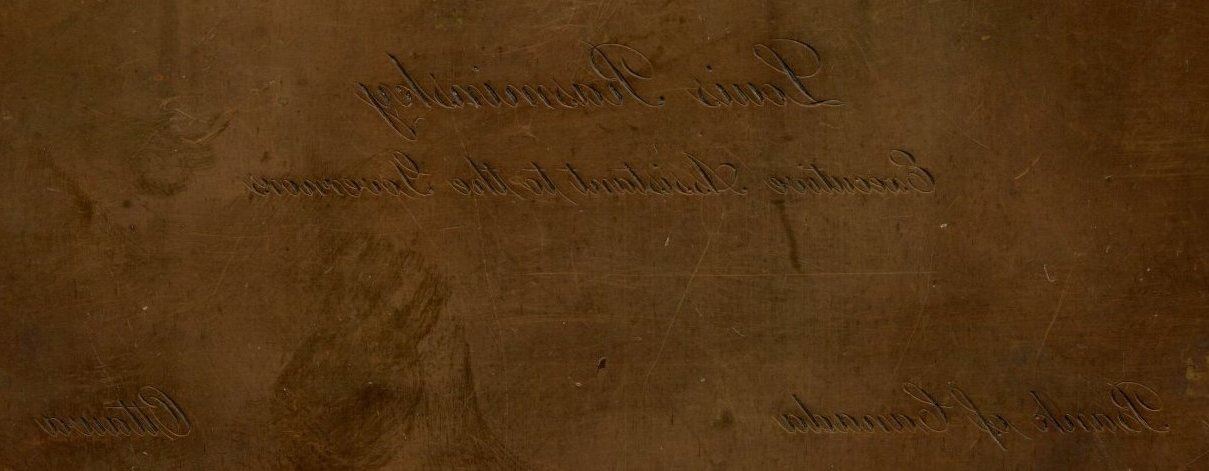 Louis Rasminsky
Executive Assistant to the Governors
Bank of Canada
Ottawa